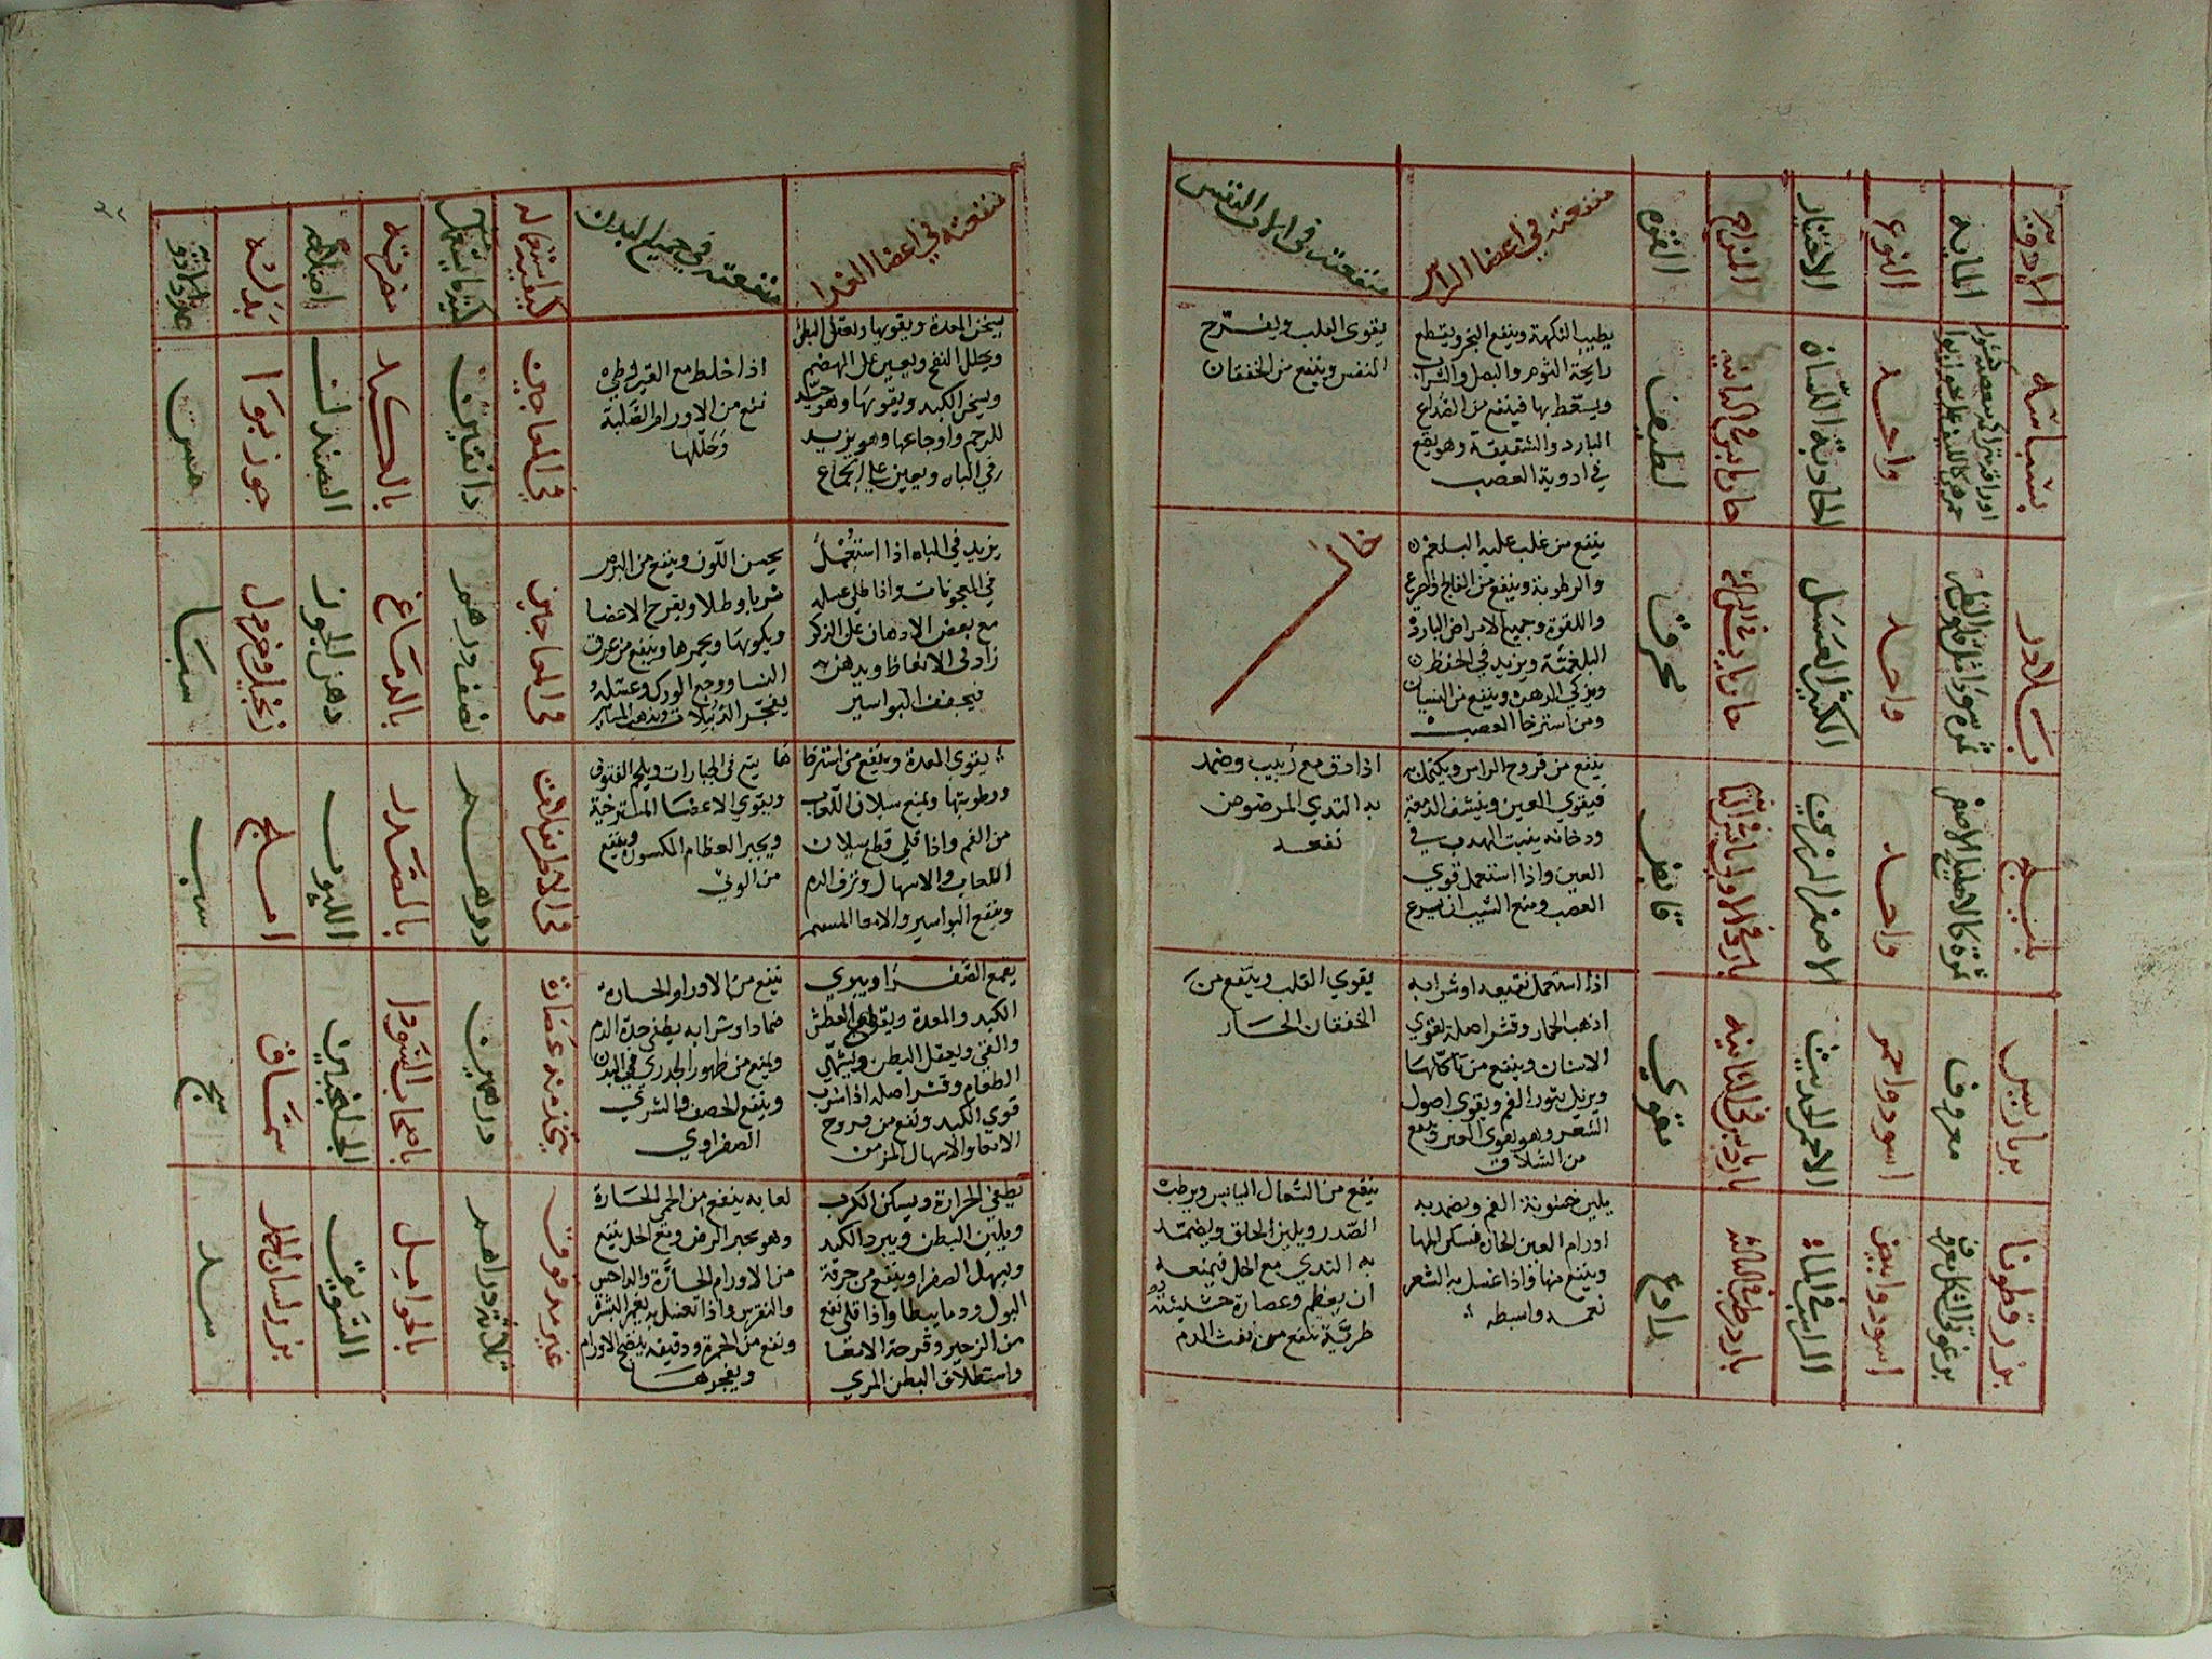 الادوية
الماهية
النوع
الاختيار
المزاج
القوة
منفعته في اعضا الراس
منفعته في الات النفس
بسباسه
واحد
الحادثة اللسان
حار يابس في الثانية
لطيف
يطيب النكهة وينفع البخر ويقطع
رايحة الثوم والبصل والشراب
ويسعط بها فينفع من الصداع
البارد والشقيقة وهو يقع
في ادوية العصب
يقوي القلب ويفرح
النفس وينفع من الخفقان
بلادر
واحد
الكثير العسل
محرق
ينفع من غلب عليه البلغم
والرطوبة وينفع من الفالج والصرع
واللقوة وجميع الامراض الباردة
البلغمية ويزيد في الحفظ
ويزكي الذهن وينفع من النسيان
ومن استرخا العصب
خال
بليلج
ثمرة كالاهليلج الاصفر
واحد
الاصفر الرزين
قابض
ينفع من قروح الراس ويكتحل به
فيقوي العين وينشف الدمعة
ودخانه ينبت الهدب في
العين واذا استعمل قوي
العصب ومنع الشيب ان يسرع
اذا دق مع زبيب وضمد
به الثدي المرضوض
نفعه
برباريس
معروف
اسود واحمر
الاحمر الحديث
بارد يابس في الثانية
مقوي
اذا استعمل نقيعه او شرابه
اذهب الخمار وقشر اصله يقوي
الاسنان وينفع من تآكلها
ويزيل بثور الفم ويقوي اصول
الشعر وهو يقوي العين وينفع
من السلاق
يقوي القلب وينفع من
الخفقان الحار
بزر قطونا
برغوثي الشكل معروف
اسود وابيض
الراسب في الماء
بارد رطب في الثالثة
رادع
يلين خشونة الفم ويضمد به
اورام العين الحارة فيسكن المها
وينفع منها واذا غسل به الشعر
نعمه وابسطه
ينفع من السعال اليابس ويرطب
الصدر ويلين الحلق ويضمد
به الثدي مع الخل فيمنعه
ان يعظم وعصارة حشيشته
طرية تنفع من نفث الدم
منفعته في اعضا الغدا
منفعته في جميع البدن
كيفية استعماله
كمية ما يستعمل منه
مضرته
اصلاحه
بدله
عدد الادوية
يسخن المعدة ويقويها ويعقل البطن
ويحلل النفخ ويعين على الهضم
ويسخن الكبد ويقويها وهو جيد
للرحم واوجاعها وهو يزيد
في الباه ويعين على الجماع
اذا خلط مع القيروطي
نفع من الاورام الصلبة
وحللها
في المعاجين
دانقين
بالكبد
الصندل
جوز بوا
يزيد في الباه اذا استعمل
في المعجونات واذا طلي عسله
مع بعض الادهان على الذكر
زاد في الانعاظ ويدهن به
فيجفف البواسير
يحسن اللون وينفع من البرص
شربا وطلا ويقرح الاعضا
ويكويها ويحمرها وينفع من عرق
النسا ووجع الورك وعسله
يفجر الدبيلات ويذهب الثآليل
في المعاجين
نصف درهم
بالدماغ
دهن الجوز
يقوي المعدة وينفع من استرخا
ورطوبتها ويمنع سيلان اللعاب
من الفم واذا قلي قطع سيلان
اللعاب والاسهال ونزف الدم
وينفع البواسير والامعا المستقيم
ها يقع في الجبارات ويلحم الفتوق
ويقوي الاعضا المسترخية
ويجبر العظام المكسورة وينفع
من الوثي
في الاطريفلات
درهم
بالصدر
املج
يقمع الصفرا ويقوي
الكبد والمعدة ويقطع العطش
والقي ويعقل البطن ويشهي
الطعام وقشر اصله اذا شرب
قوي الكبد ونفع من قروح
الامعا والاسهال المزمن
ينفع من الاورام الحارة
ضمادا وشرابه يطفي حدة الدم
ويمنع من ظهور الجدري في البدن
وينفع الحصف والشري
الصفراوي
يتخذ منه عصارة
درهمين
باصحاب السودا
الجلنجبين
سماق
يطفي الحرارة ويسكن الكرب
ويلين البطن ويبرد الكبد
ويسهل الصفرا وينفع من حرقة
البول ودما بيطا واذا قلي نفع
من الزحير وقرحة الامعا
واستطلاق البطن المري
لعابه ينفع من الحمى الحارة
من الاورام الحارة والداحس
ونفع من الحمرة ودقيقه ينضج الاورام
ويفجرها
غير مدقوق
ثلاثة دراهم
بالحوامل
السويق
بزر لسان الحمل